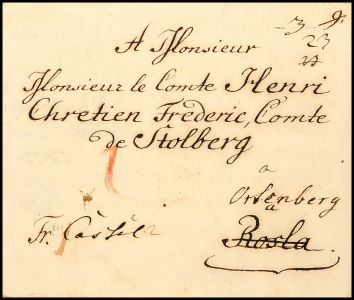 A Monsieur
Monsieur le Comte Henri
Chretien Frederic, Comte
de Stolberg
a
Ortenberg
a
Rosla
Fr. Cassel
3
23